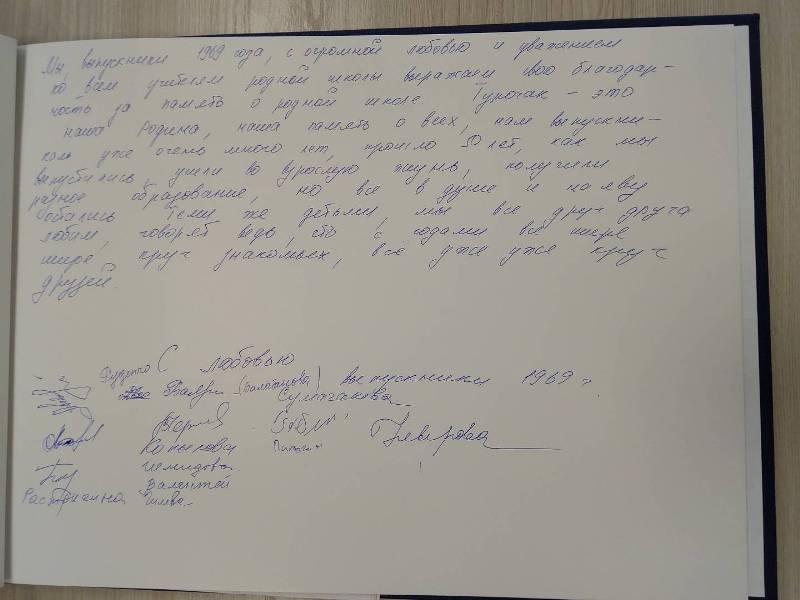 Мы, выпускники 1969 года, с огромной любовью и уважением
ко всем учителям родной школы выражаем свою благодар-
ность за память о родной школе. Турочак - это
наша Родина, наша память о всех, нам выпускни-
кам уже очень много лет, прошло 50 лет, как мы
выпустились, ушли во взрослую жизнь, получили
разное образование, но все в душе и наяву
остались теми же детьми, мы все друг друга
любим, говорят ведь, что с годами всё шире
шире круг знакомых, всё уже уже круг
друзей.
С любовью
выпускники 1969 г
Копылова
Неверова
Демидова